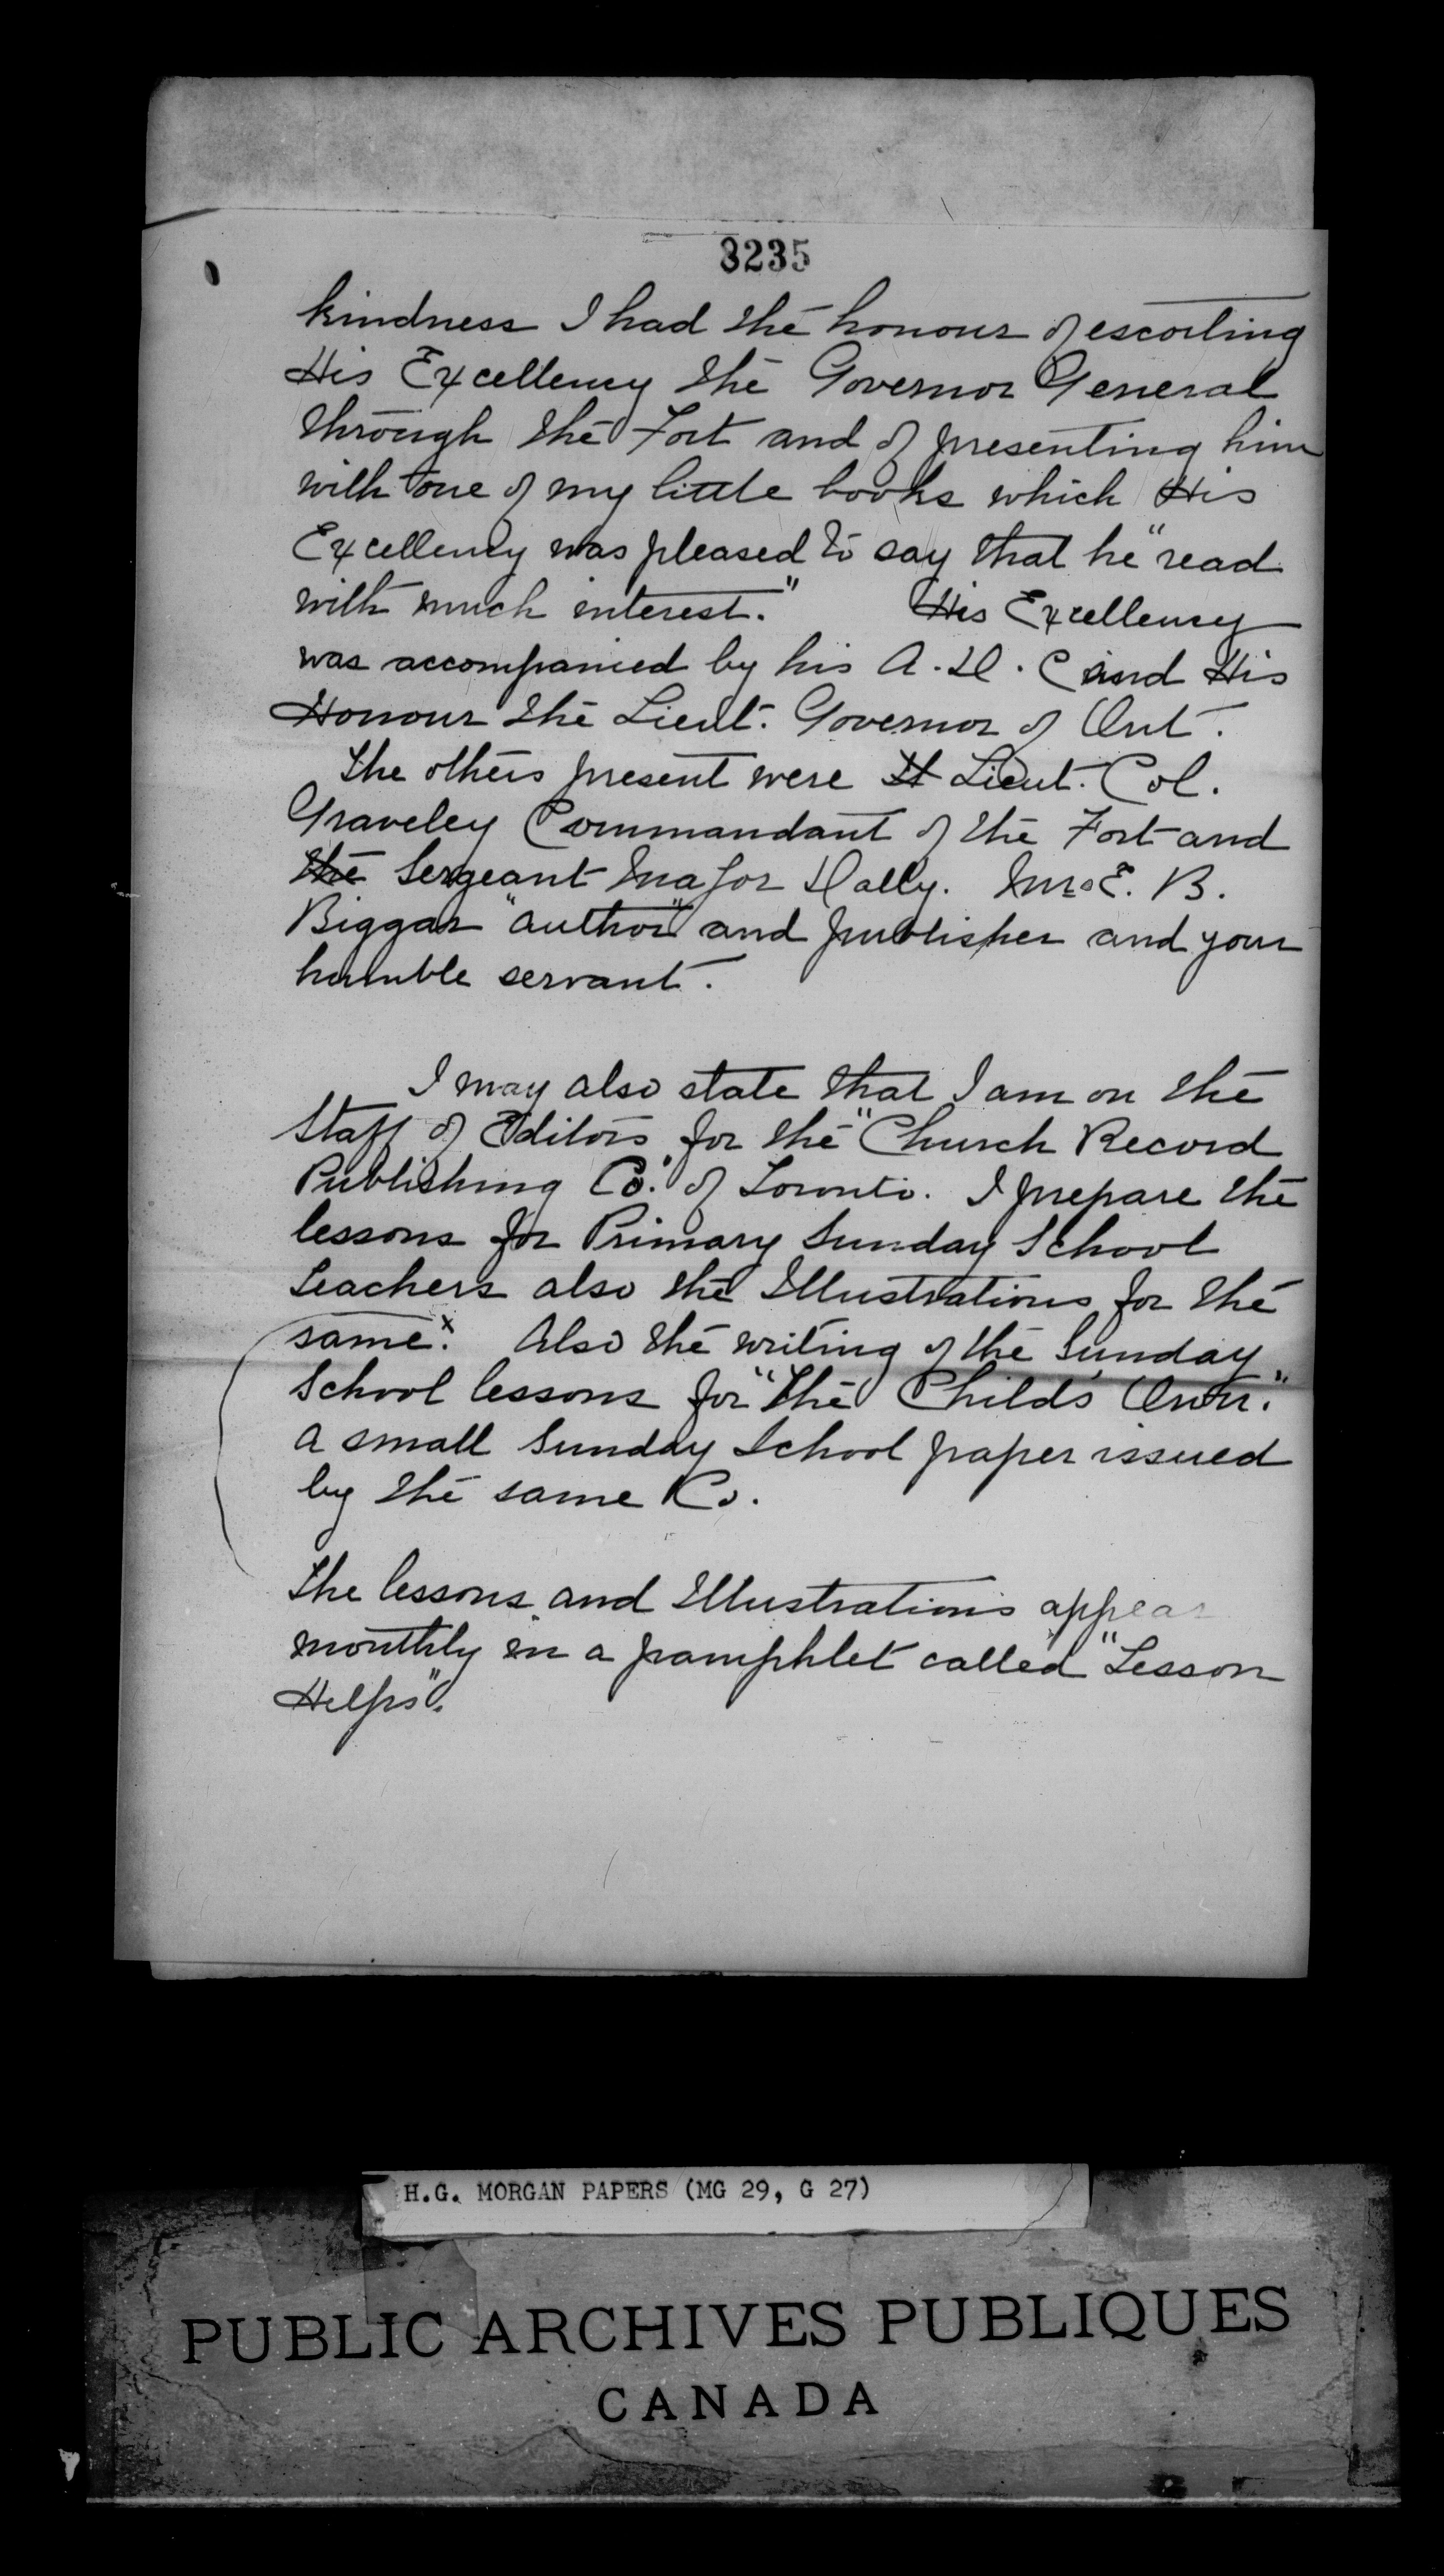 8235
kindness I had the honour of escorting
His Excellency the Governor General
through the Fort and of presenting him
with one of my little books which His
Excellency was pleased to say that he "read
with much interest." His Excellency
was accompanied by his A. D. C and His
Honour the Lieut. Governor of Ont.
The others present were Lt Lieut. Col.
Graveley Commandant of the Fort and
the Sergeant Major Dally.
Biggar "author" and publisher and your
humble servant.
I may also state that I am on the
Staff of Editors for the "Church Record
Publishing Co." of Toronto. I prepare the
lessons for Primary Sunday School
Teachers also the Illustrations for the
same.x Also the writing of the Sunday
School lessons for "The Child's Own."
a small Sunday School paper issued
by the same Co.
The lessons and Illustrations appear
monthly in a pamphlet called "Lesson
Helps".
H.G. MORGAN PAPERS (MG 29, G 27)
PUBLIC ARCHIVES PUBLIQUES
CANADA